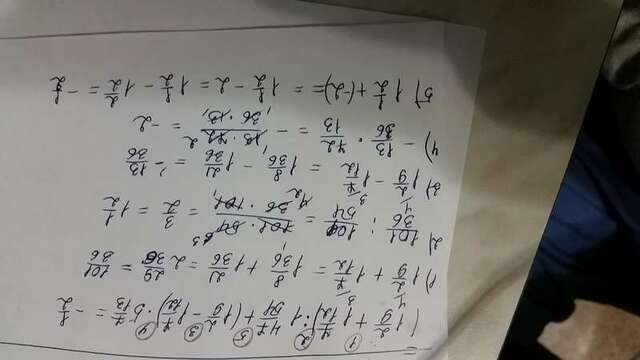 ① ② ⑤ ③ ④
(1 2/9 + 1 7/12) : 1 47/54 + (1 2/9 - 1 7/12) · 5 7/13 = - 1/2
1) 1 2/9 + 1 7/12 = 1 8/36 + 1 21/36 = 2 29/36 = 101/36
2) 101/36 : 101/54 = 101 · 54 / 36 · 101 = 3/2 = 1 1/2
3) 1 2/9 - 1 7/12 = 1 8/36 - 1 21/36 = - 13/36
4) - 13/36 · 72/13 = - 13 · 72 / 36 · 13 = -2
5) 1 1/2 + (-2) = = 1 1/2 - 2 = 1 1/2 - 1 2/2 = - 1/2